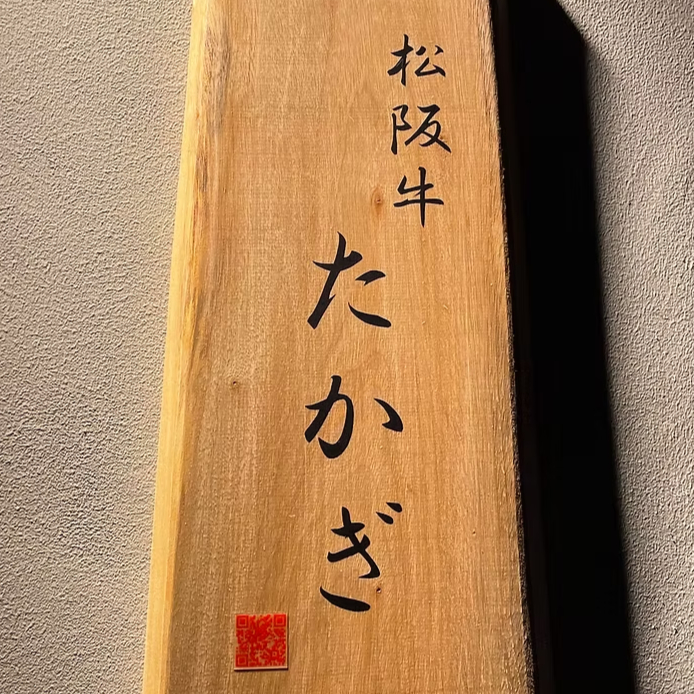 松阪牛
たかぎ